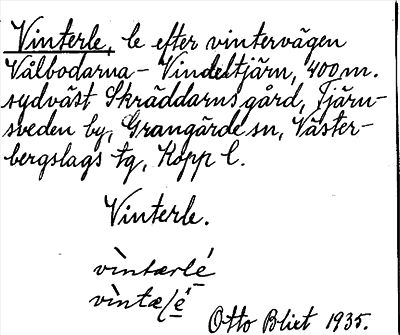 Vinterle, le efter vintervägen
Vålbodarna - Vindeltjärn, 400 m.
sydväst Skräddarns gård, Tjärn-
sveden by, Grangärde sn, Väster-
bergslags tg, Kopp l.
Vinterle.
vìntærlé
vìntæ
Otto Blixt 1935.